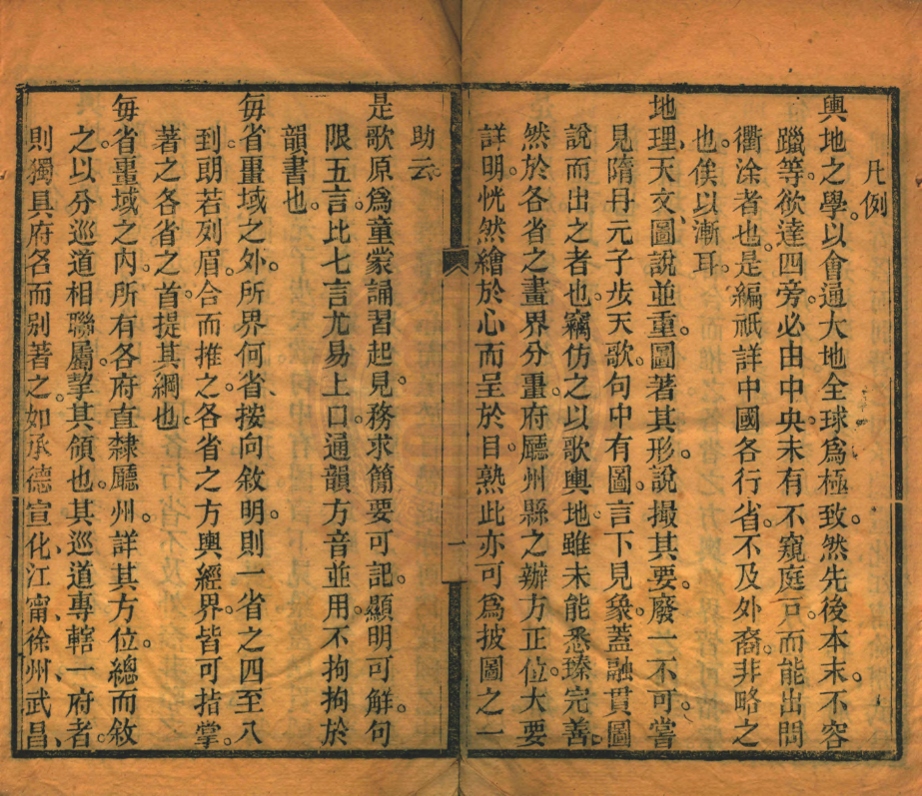 凡例
輿地之學。以會通大地全球爲極致。然先後本末。不容
躐等。欲達四旁。必由中央。未有不窺庭戸。而能出問
衢涂者也。是編祇詳中國各行省。不及外裔。非略之
也。俟以漸耳。
地理、天文、圖說並重。圖著其形。說撮其要。廢一不可。嘗
見隋丹元子步天歌。句中有圖。言下見象。蓋融貫圖
說而出之者也。竊仿之以歌輿地。雖未能悉臻完善。
然於各省之畫界分畺。府廳州縣之辦方正位。大要
詳明。恍然繪於心而呈於目。熟此亦可爲披圖之一
助云。
是歌原爲童蒙誦習起見。務求簡要可記。顯明可解。句
限五言。比七言尤易上口。通韻方音並用。不拘拘於
韻書也。
每省畺域之外。所界何省、按向敘明。則一省之四至八
到。朗若列眉。合而推之。各省之方輿經界。皆可掿掌。
著之各省之首。提其綱也。
每省畺域之內。所有各府直隸廳州。詳其方位。總而敘
之。以分巡道相聯屬。挈其領也。其巡道專轄一府者。
則獨具府名而别著之。如承德、宣化、江甯、徐州、武昌、
一